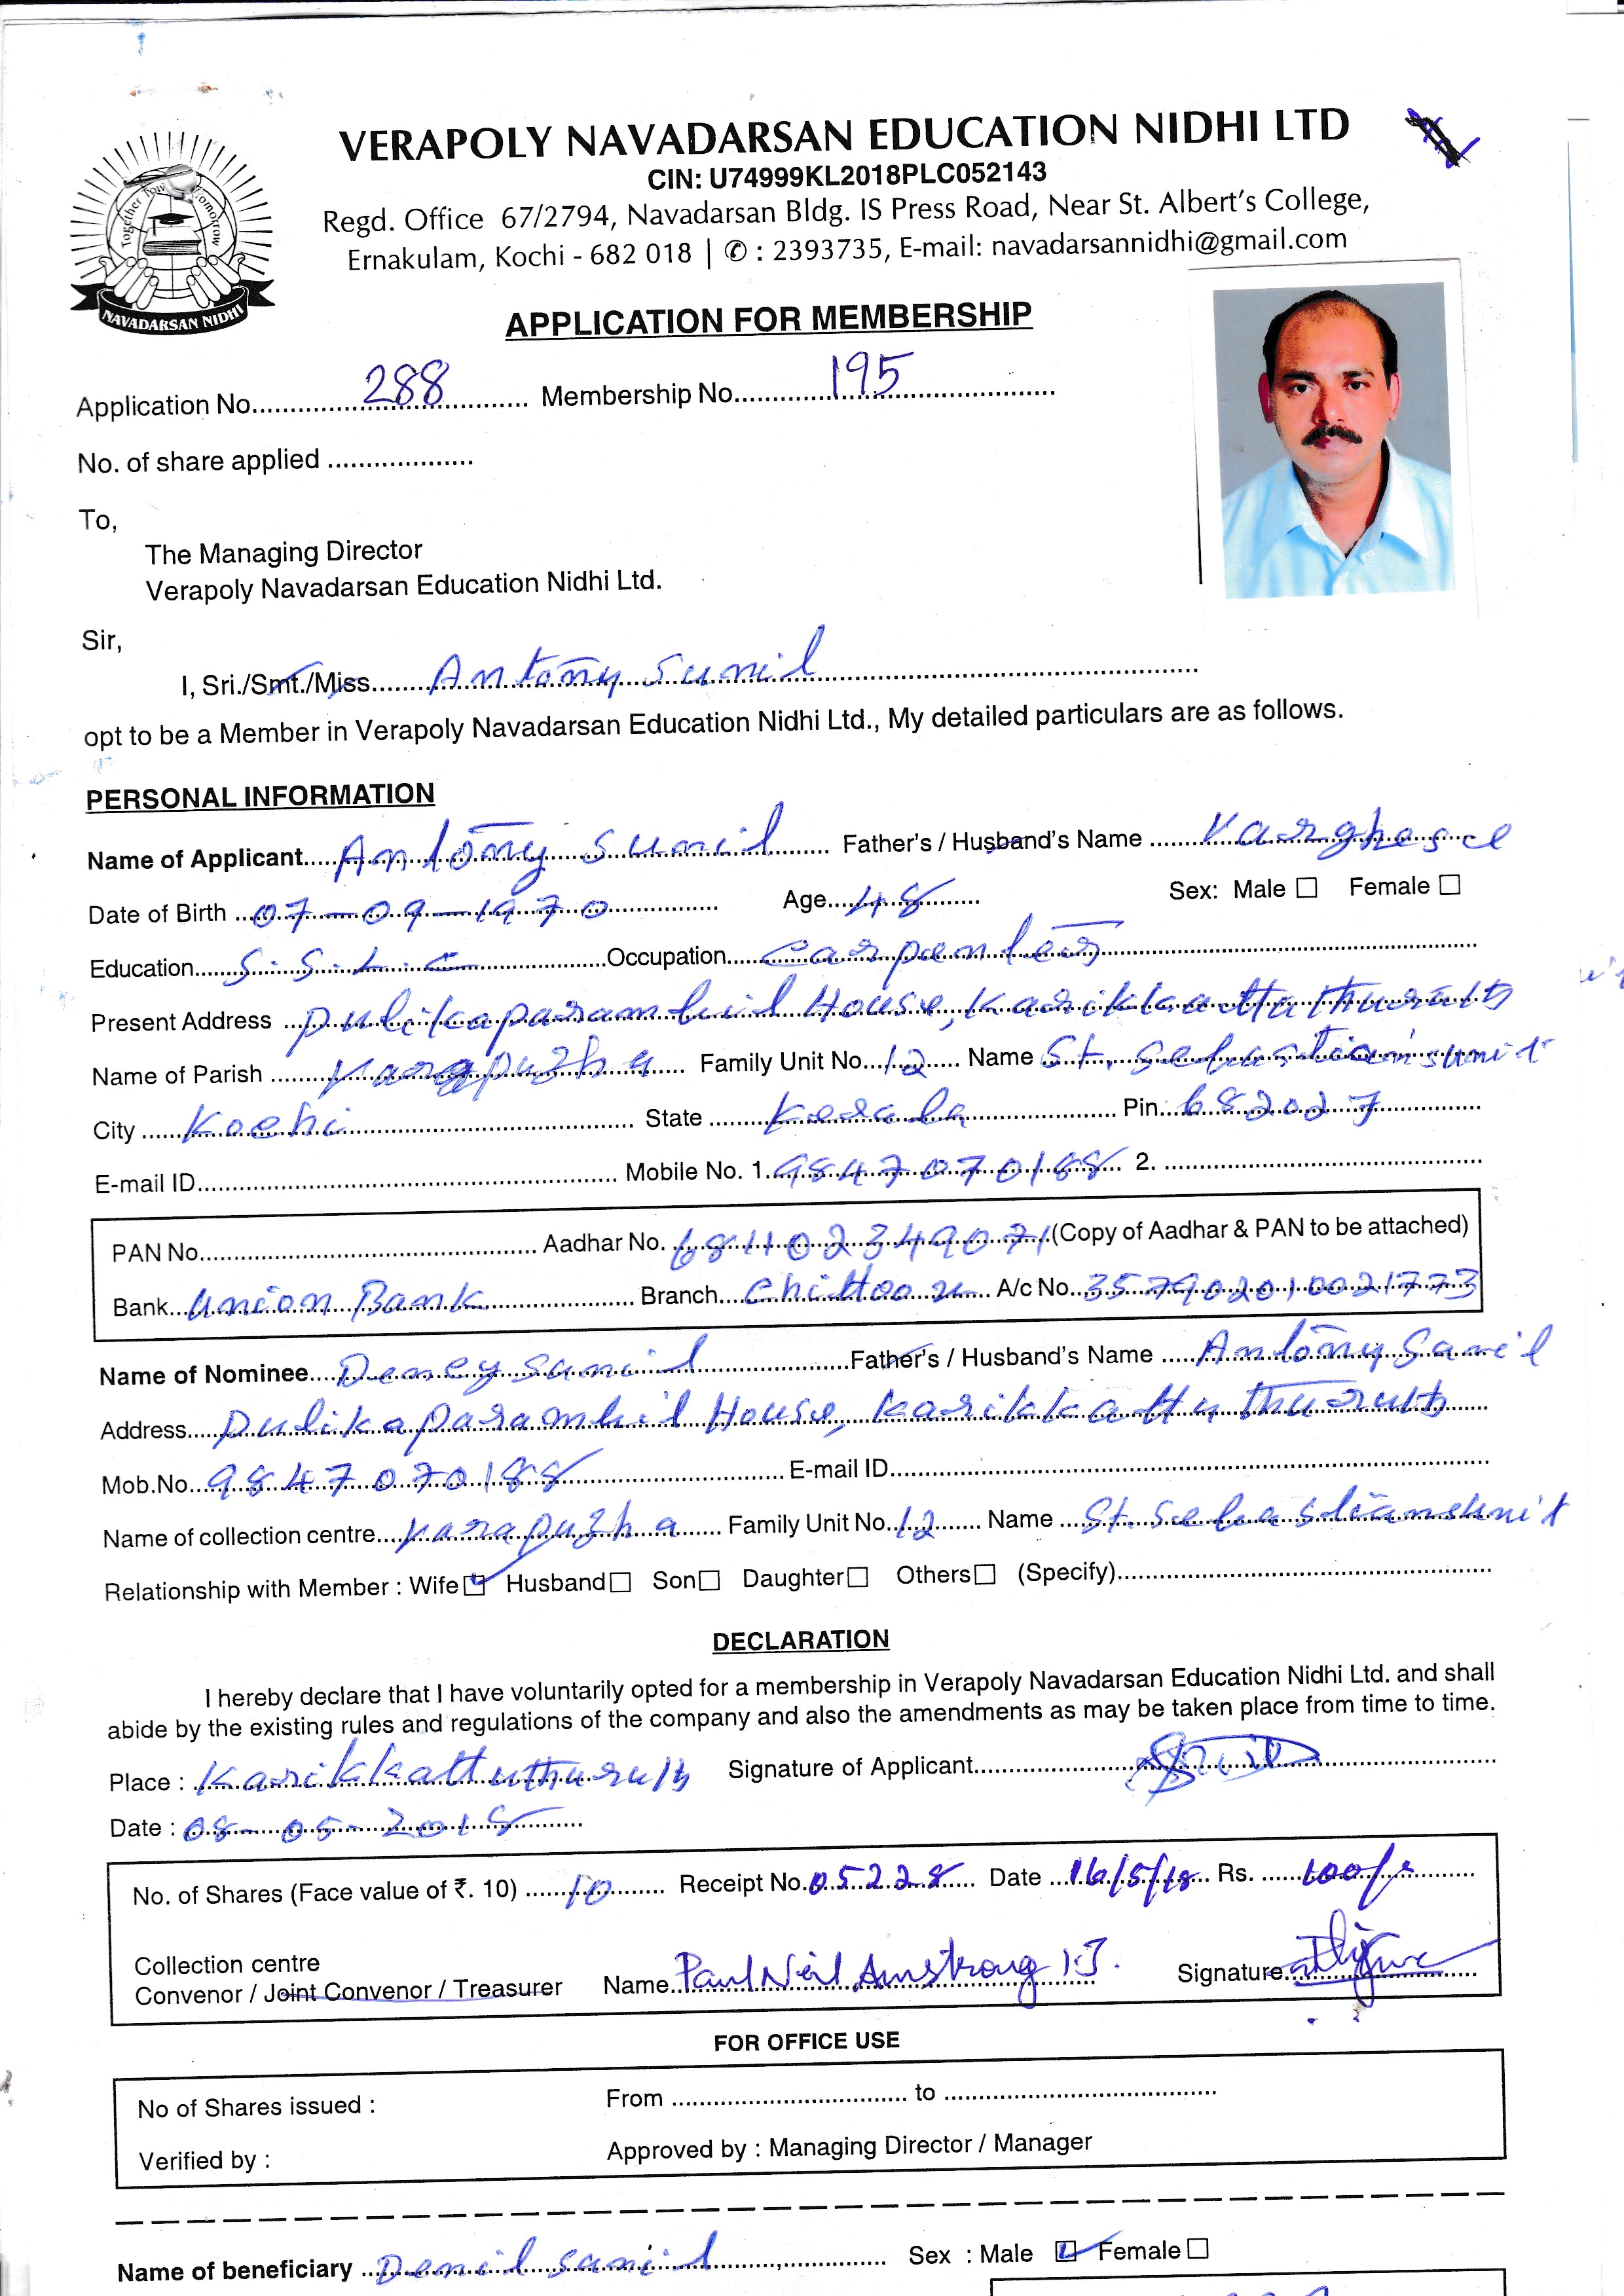 VERAPOLY NAVADARSAN EDUCATION NIDHI LTD
CIN: U74999KL2018PLC052143
Regd. Office 67/2794, Navadarsan Bldg. IS Press Road, Near St. Albert's College,
Ernakulam, Kochi - 682 018 | ✆ : 2393735, E-mail: navadarsannidhi@gmail.com
NAVADARSAN NIDHI
APPLICATION FOR MEMBERSHIP
Application No. 288 Membership No. 195
No. of share applied
To,
The Managing Director
Verapoly Navadarsan Education Nidhi Ltd.
Sir,
I, Sri./Smt./Miss Antony Sunil
opt to be a Member in Verapoly Navadarsan Education Nidhi Ltd., My detailed particulars are as follows.
PERSONAL INFORMATION
Name of Applicant Antony Sunil Father's / Husband's Name Varghese
Date of Birth 07-09-1970 Age 48 Sex: Male ☐ Female ☐
Education S.S.L.C Occupation Carpenter
Present Address Pulikaparambil House, Karikkattuthuruth
Name of Parish Varapuzha Family Unit No. 12 Name St. Sebastian's unit
City Kochi State Kerala Pin. 682027
E-mail ID Mobile No. 1. 9847070188 2.
PAN No. Aadhar No. 681102349071 (Copy of Aadhar & PAN to be attached)
Bank Union Bank Branch Chittoor A/c No. 357902010021773
Name of Nominee Dency Sunil Father's / Husband's Name Antony Sunil
Address Pulikaparambil House, Karikkattuthuruth
Mob.No. 9847070188 E-mail ID
Name of collection centre Varapuzha Family Unit No. 12 Name St. Sebastians unit
Relationship with Member : Wife ☑ Husband ☐ Son ☐ Daughter ☐ Others ☐ (Specify)
DECLARATION
I hereby declare that I have voluntarily opted for a membership in Verapoly Navadarsan Education Nidhi Ltd. and shall
abide by the existing rules and regulations of the company and also the amendments as may be taken place from time to time.
Place : Karikkattuthuruth Signature of Applicant
Date : 08-05-2018
No. of Shares (Face value of ₹. 10) 10 Receipt No. 05228 Date 16/5/18 Rs. 100/-
Collection centre
Convenor / Joint Convenor / Treasurer Name Paul Neil Amstrong K.J. Signature
FOR OFFICE USE
No of Shares issued : From to
Verified by : Approved by : Managing Director / Manager
Name of beneficiary Denil Sunil Sex : Male ☑ Female ☐